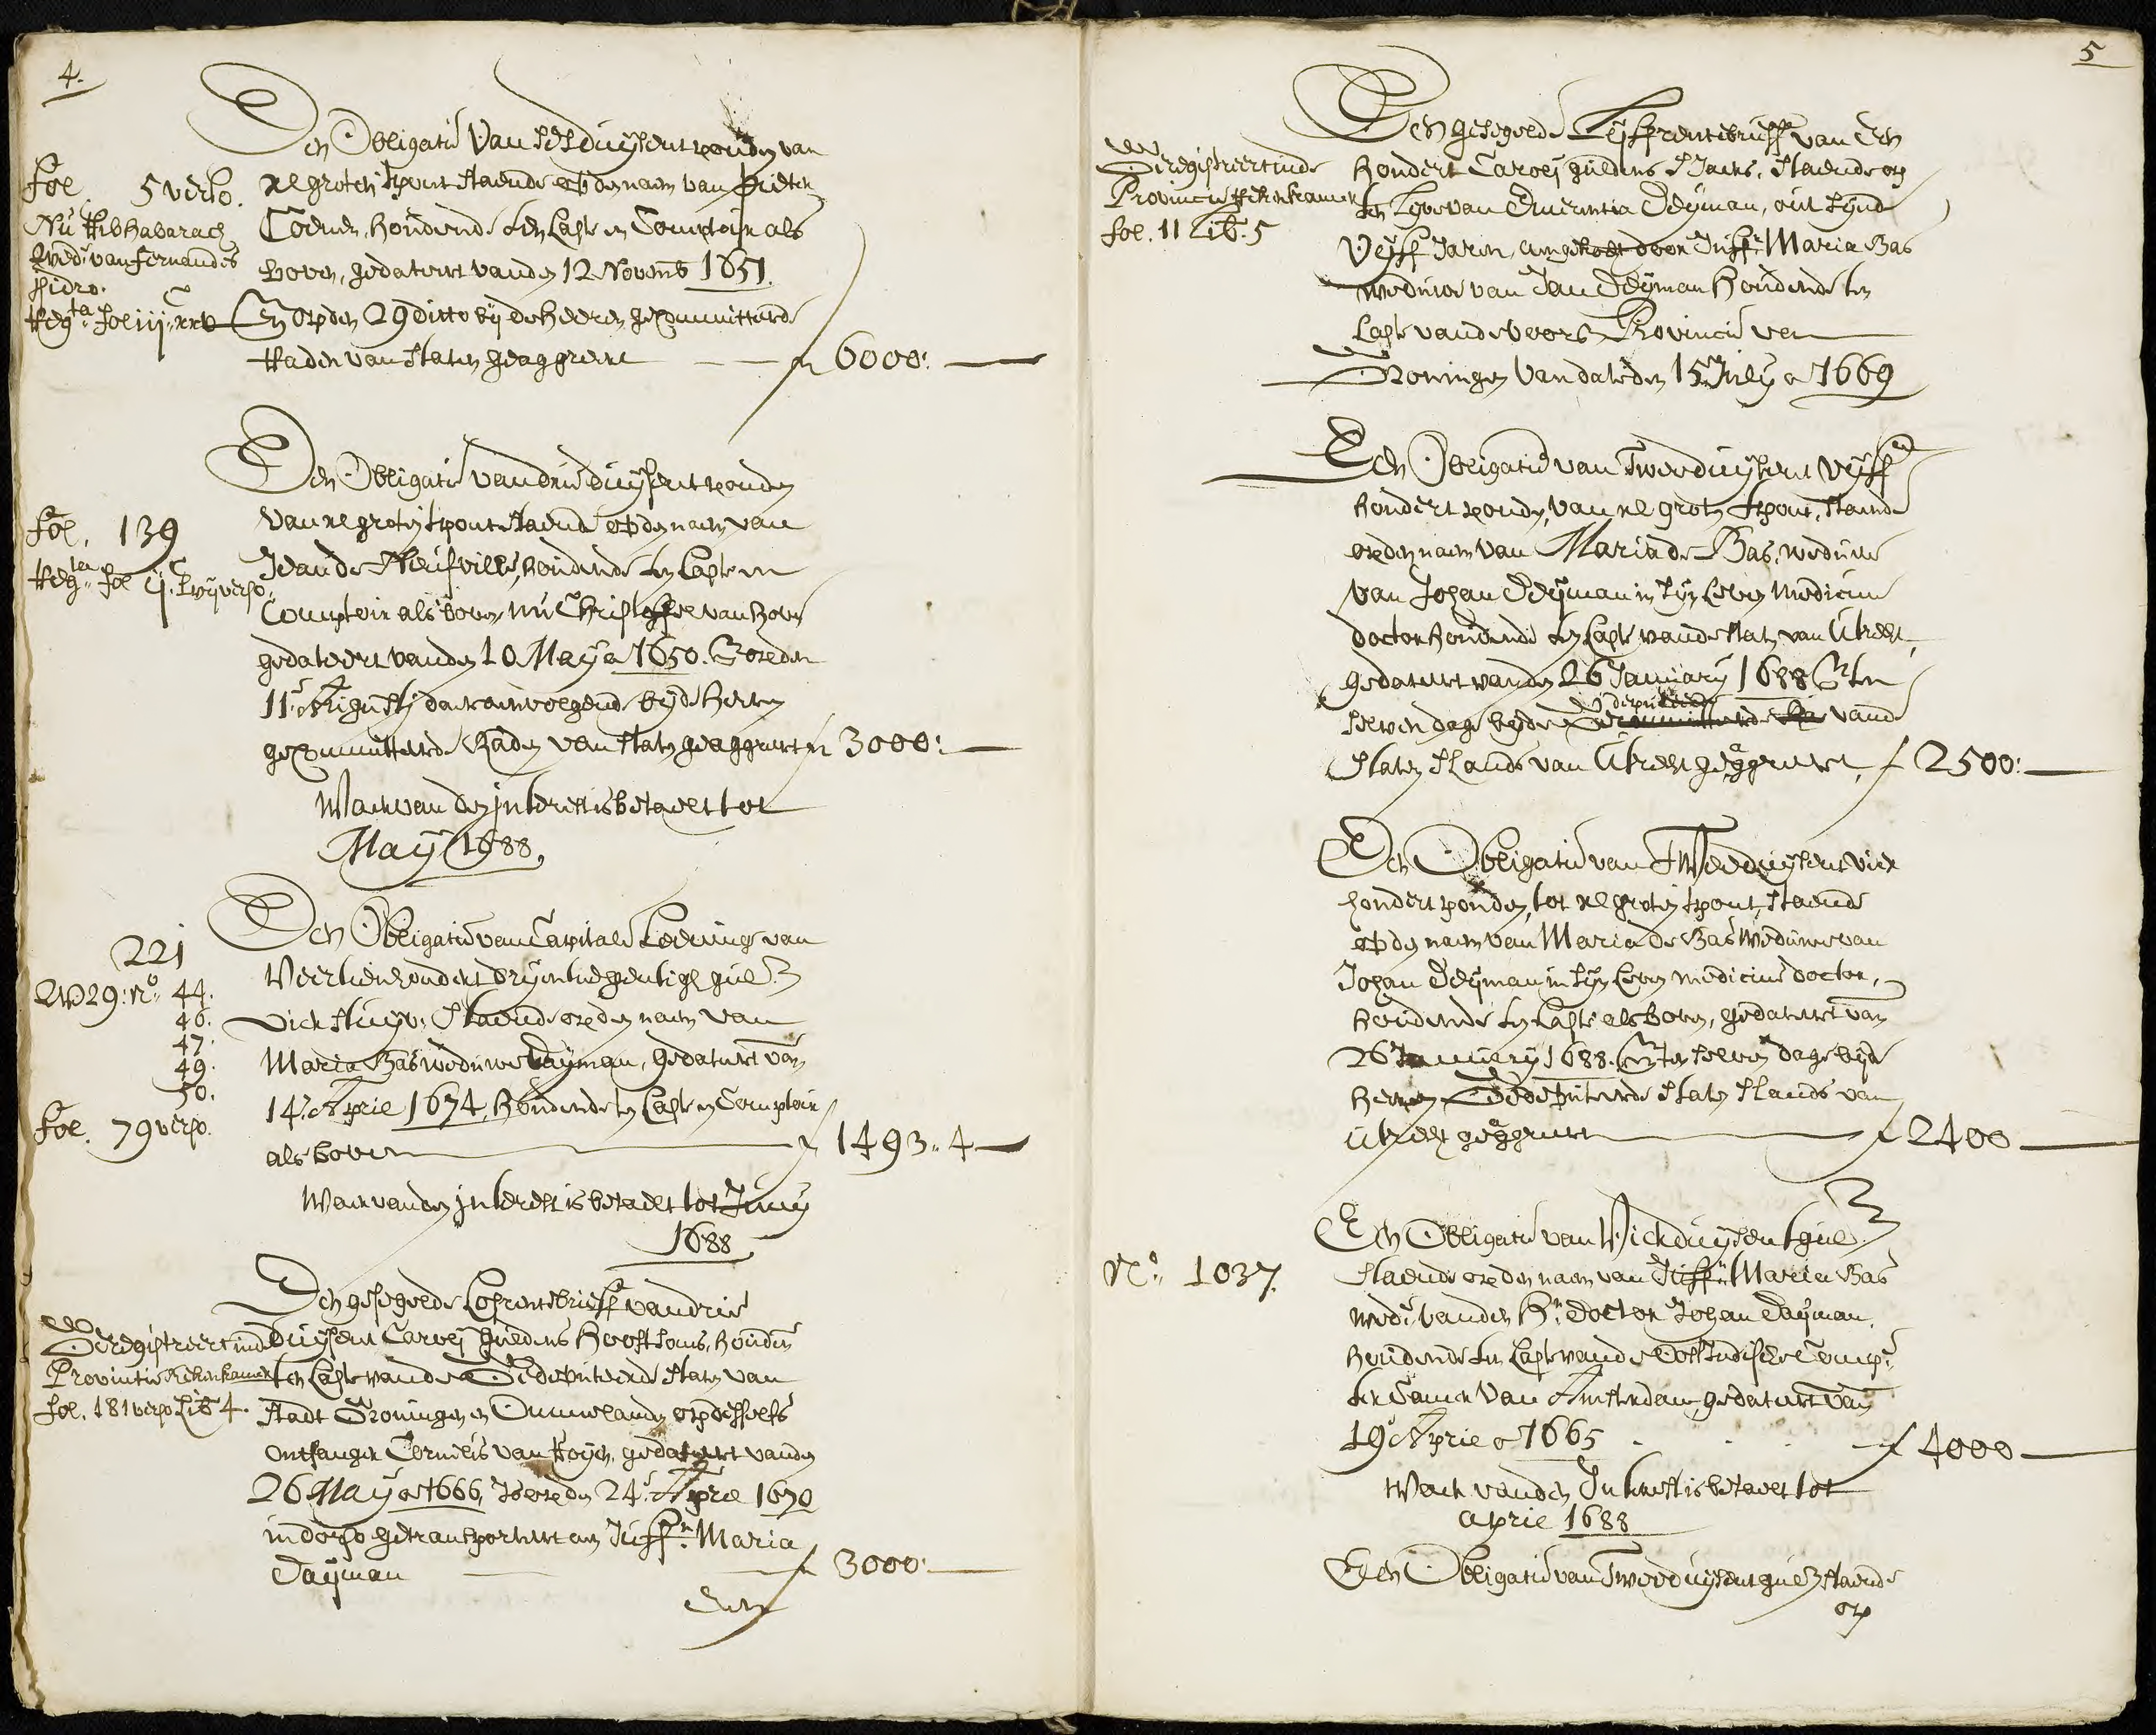 4.
Een Obligatie van ses duysent ponden van
xl groten tpont staende op den naem van Pieter
Coenen, houdende ten Laste en Comptoir als
boven, gedateert vanden 12 Novemb 1651.
En op den 29 ditto by de heeren gecommitteerde
Raden van Staten geaggreert f 6000:
fol 5 verso.
Nu Rib
Wedᵉ van Fernandes
Pidro.
Regᵗᵃ fol iijᶜ xxv
Een Obligatie van drie duysent ponden
van xl groten tpont staende op den naem van
Jean de Neufville, houdende ten Laste en
Comptoir als boven, nu Christoffel van Hove
gedateert vanden 10 May aº 1650. En op den
11ᵉ Augusty daer aenvolgende by de Heeren
gecommitteerde Raden van Staten geaggreert f 3000:
Waer van den interest is betaelt tot
May 1688.
fol. 139
Regᵗᵃ fol ijᶜ Lxvij verso.
Een Obligatie van Capitale Leeninge van
Veertien hondert dryentnegentigh guld
vier stuyv. Staende op den naem van
Maria Bas weduwe Dayman, gedateert van
14ᵉ April 1674, Houdende ten Laste en Comptoir
als boven f 1493.. 4
Waer van den interest is betaelt tot Juny
1688
221
W 29: Nº 44.
46.
47.
49.
50.
fol. 79 verso.
Een gesegelde Losrentebrieff van drie
duysent Caroly guldens hooftsoms, houden
ten Laste vande Gedeputeerde Staten van
Stadt Groningen en Ommelanden op desselfs
ontfanger Cornelis van Royen, gedateert vanden
26 May aº 1666, Is op den 24ᵉ April 1670
in dorso getransporteert aen Juffʳ Maria
Dayman f 3000:
Een
Geregistreert inde
Provintie Rekenkamer
fol. 181 verso Lib 4.
5
Een gesegelde Lyffrentebrieff van Een
hondert Caroly guldens sJaers, staende op
ten Lyve van Emerentia Deyman, out synde
Vyff Jaren, aengekoft door Juffʳ Maria Bas
weduwe van Jan Deyman houdende ten
Laste vande voors Provincie ven
Groningen van date den 15 July aº 1669
Geregistreert inde
Provincie Rekenkamer
fol. 11 Lib. 5
Een Obligatie van Tweeduysent vyff
hondert ponden, van xl groten tpont, staende
op den naem van Maria de Bas, weduwe
van Johan Deyman in syn Leven medicine
doctor houdende ten Laste vande Staten van Utrecht,
gedateert vanden 26 January 1688 En ten
selven dage by de Gecommitteerde Ra vande
deputeerde
Staten slands van Utrecht geaggreert, f 2500:
Een Obligatie van Tweeduysent vier
hondert ponden, tot xl groten tpont, staende
op den naem van Maria de Bas weduwe van
Johan Deyman in syn Leven medicine doctor,
houdende ten Laste als boven, gedateert van
26 January 1688. En ten selven dage by de
heeren Gedeputeerde Staten slands van
Utrecht geaggreert f 2400
Een Obligatie van Vierduysent guld
staende op den naem van Juffʳ Maria Bas
wedᵉ vanden Hʳ doctor Johan Dayman.
houdende ten Laste vande Oost Indische Compᵉ
ter Camer van Amsterdam, gedateert van
19ᵉ April aº 1665 f 4000
Waer vanden Interest is betaelt tot
april 1688
Nº 1037.
Een Obligatie van Tweeduysent guld staende
op